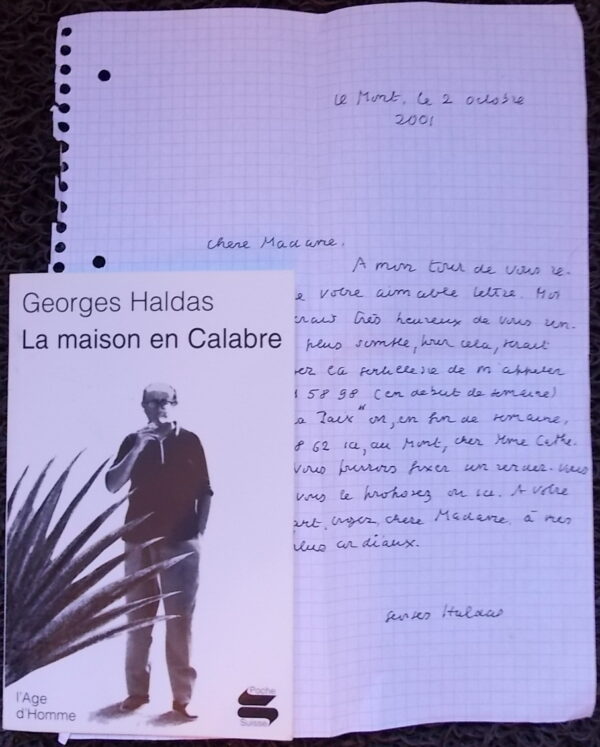 Le Mont, le 2 octobre
2001
chère Madame,
A mon tour de vous re-
votre aimable lettre. Moi
très heureux de vous ren-
plus simple, pour cela, serait
la gentillesse de m'appeler
58 98 (en début de semaine)
Paix" ou, en fin de semaine,
62 ici, au Mont, chez Mme
pourrons fixer un rendez-vous
vous le proposez ou ici. A votre
chère Madame, à mes
plus cordiaux.
Georges Haldas
Georges Haldas
La maison en Calabre
l'Age
d'Homme
Poche
Suisse